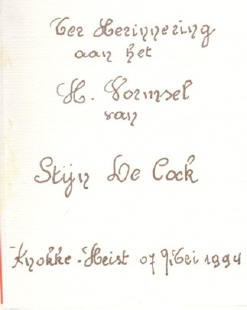 Ter Herinnering
aan het
H. Vormsel
van
Stijn De Cock
Knokke-Heist 07 Mei 1994